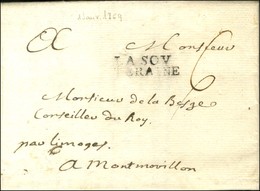 Monsieur
LA SOV
TERAINE
6
Monsieur de la Besge
Conseiller du Roy,
par Limoges.
A Montmorillon